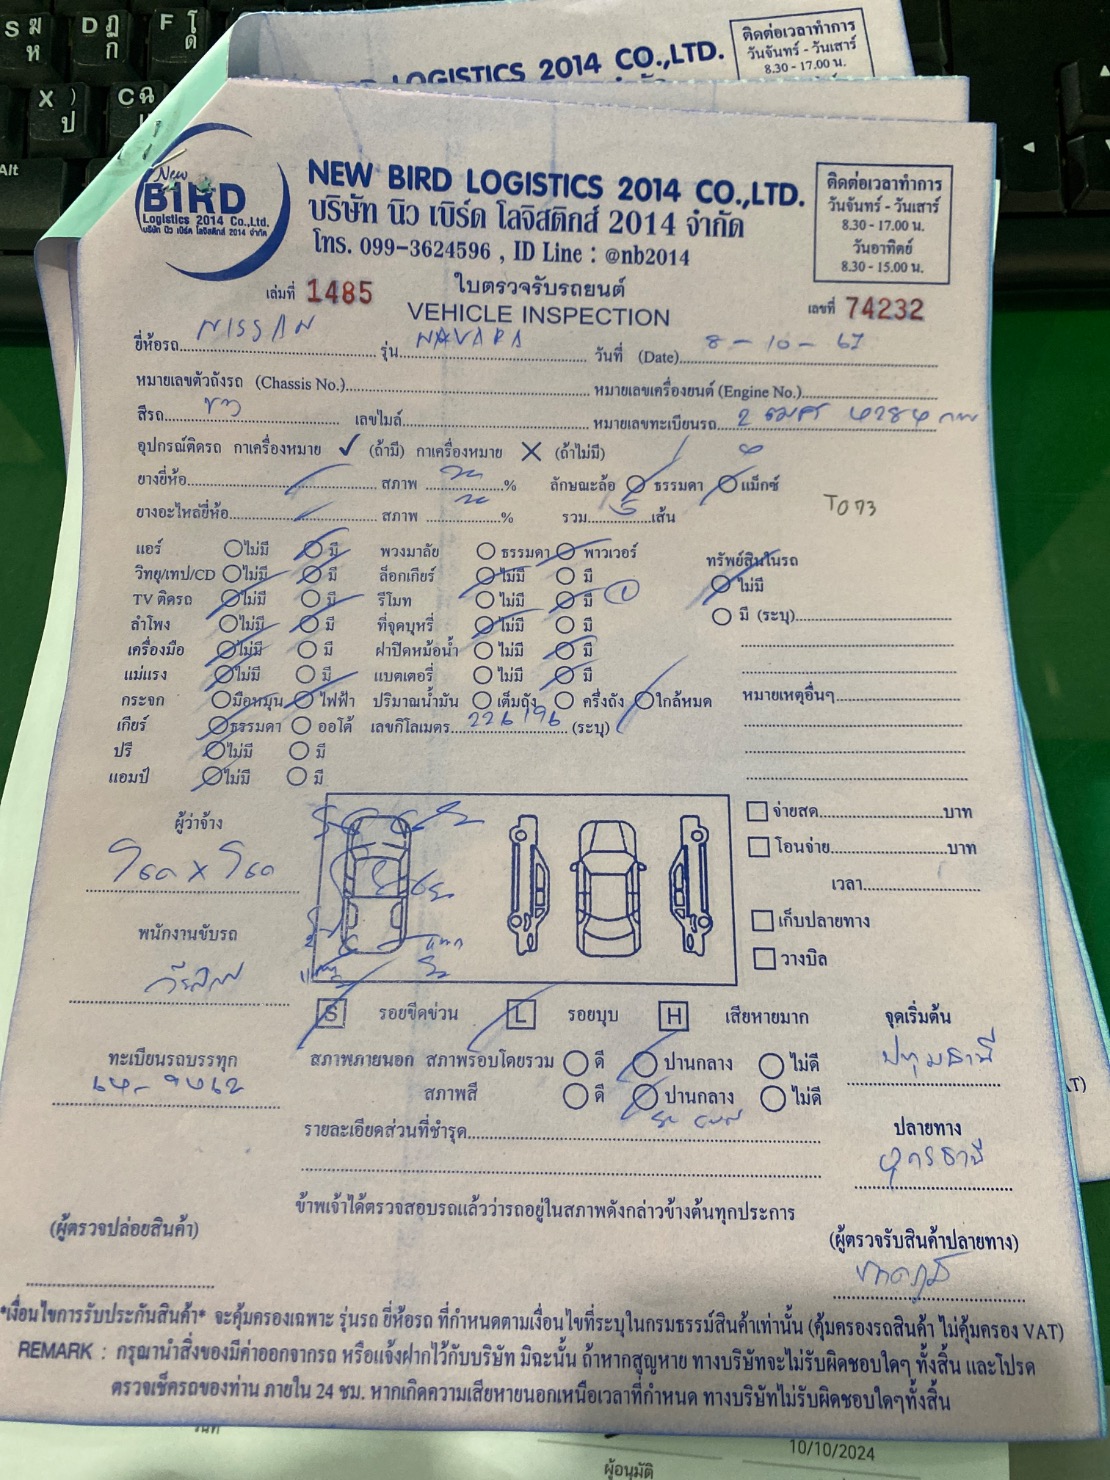 S ห D ก ฏ F ด โ
X ป ) C ฉ
Alt
BIRD LOGISTICS 2014 CO.,LTD.
ติดต่อเวลาทำการ
วันจันทร์ - วันเสาร์
8.30 - 17.00 น.
New
BIRD
Logistics 2014 Co.,Ltd.
บริษัท นิว เบิร์ด โลจิสติกส์ 2014 จำกัด
NEW BIRD LOGISTICS 2014 CO.,LTD.
บริษัท นิว เบิร์ด โลจิสติกส์ 2014 จำกัด
โทร. 099-3624596 , ID Line : @nb2014
ติดต่อเวลาทำการ
วันจันทร์ - วันเสาร์
8.30 - 17.00 น.
วันอาทิตย์
8.30 - 15.00 น.
เล่มที่ 1485 ใบตรวจรับรถยนต์ เลขที่ 74232
VEHICLE INSPECTION
ยี่ห้อรถ NISSAN รุ่น NAVARA วันที่ (Date) 8-10-67
หมายเลขตัวถังรถ (Chassis No.) หมายเลขเครื่องยนต์ (Engine No.)
สีรถ ขาว เลขไมล์ หมายเลขทะเบียนรถ 2
อุปกรณ์ติดรถ กาเครื่องหมาย ✓ (ถ้ามี) กาเครื่องหมาย X (ถ้าไม่มี)
ยางยี่ห้อ สภาพ % ลักษณะล้อ ธรรมดา แม็กซ์
ยางอะไหล่ยี่ห้อ สภาพ % รวม 5 เส้น T073
แอร์ ไม่มี มี พวงมาลัย ธรรมดา พาวเวอร์ ทรัพย์สินในรถ
วิทยุ/เทป/CD ไม่มี มี ล็อกเกียร์ ไม่มี มี ไม่มี
TV ติดรถ ไม่มี มี รีโมท ไม่มี มี 1 มี (ระบุ)
ลำโพง ไม่มี มี ที่จุดบุหรี่ ไม่มี มี
เครื่องมือ ไม่มี มี ฝาปิดหม้อน้ำ ไม่มี มี
แม่แรง ไม่มี มี แบตเตอรี่ ไม่มี มี
กระจก มือหมุน ไฟฟ้า ปริมาณน้ำมัน เต็มถัง ครึ่งถัง ใกล้หมด หมายเหตุอื่นๆ
เกียร์ ธรรมดา ออโต้ เลขกิโลเมตร 226196 (ระบุ)
ปรี ไม่มี มี
แอมป์ ไม่มี มี
ผู้ว่าจ้าง
พนักงานขับรถ
ทะเบียนรถบรรทุก
จ่ายสด บาท
โอนจ่าย บาท
เวลา
เก็บปลายทาง
วางบิล
S รอยขีดข่วน L รอยบุบ H เสียหายมาก
จุดเริ่มต้น
ปทุมธานี
สภาพภายนอก สภาพรอบโดยรวม ดี ปานกลาง ไม่ดี
สภาพสี ดี ปานกลาง ไม่ดี
รายละเอียดส่วนที่ชำรุด
ปลายทาง
อุดรธานี
ข้าพเจ้าได้ตรวจสอบรถแล้วว่ารถอยู่ในสภาพดังกล่าวข้างต้นทุกประการ
(ผู้ตรวจปล่อยสินค้า) (ผู้ตรวจรับสินค้าปลายทาง)
*เงื่อนไขการรับประกันสินค้า* จะคุ้มครองเฉพาะ รุ่นรถ ยี่ห้อรถ ที่กำหนดตามเงื่อนไขที่ระบุในกรมธรรม์สินค้าเท่านั้น (คุ้มครองรถสินค้า ไม่คุ้มครอง VAT)
REMARK : กรุณานำสิ่งของมีค่าออกจากรถ หรือแจ้งฝากไว้กับบริษัท มิฉะนั้น ถ้าหากสูญหาย ทางบริษัทจะไม่รับผิดชอบใดๆ ทั้งสิ้น และโปรด
ตรวจเช็ครถของท่าน ภายใน 24 ชม. หากเกิดความเสียหายนอกเหนือเวลาที่กำหนด ทางบริษัทไม่รับผิดชอบใดๆทั้งสิ้น
AT)
วันที่
10/10/2024
ผู้อนุมัติ